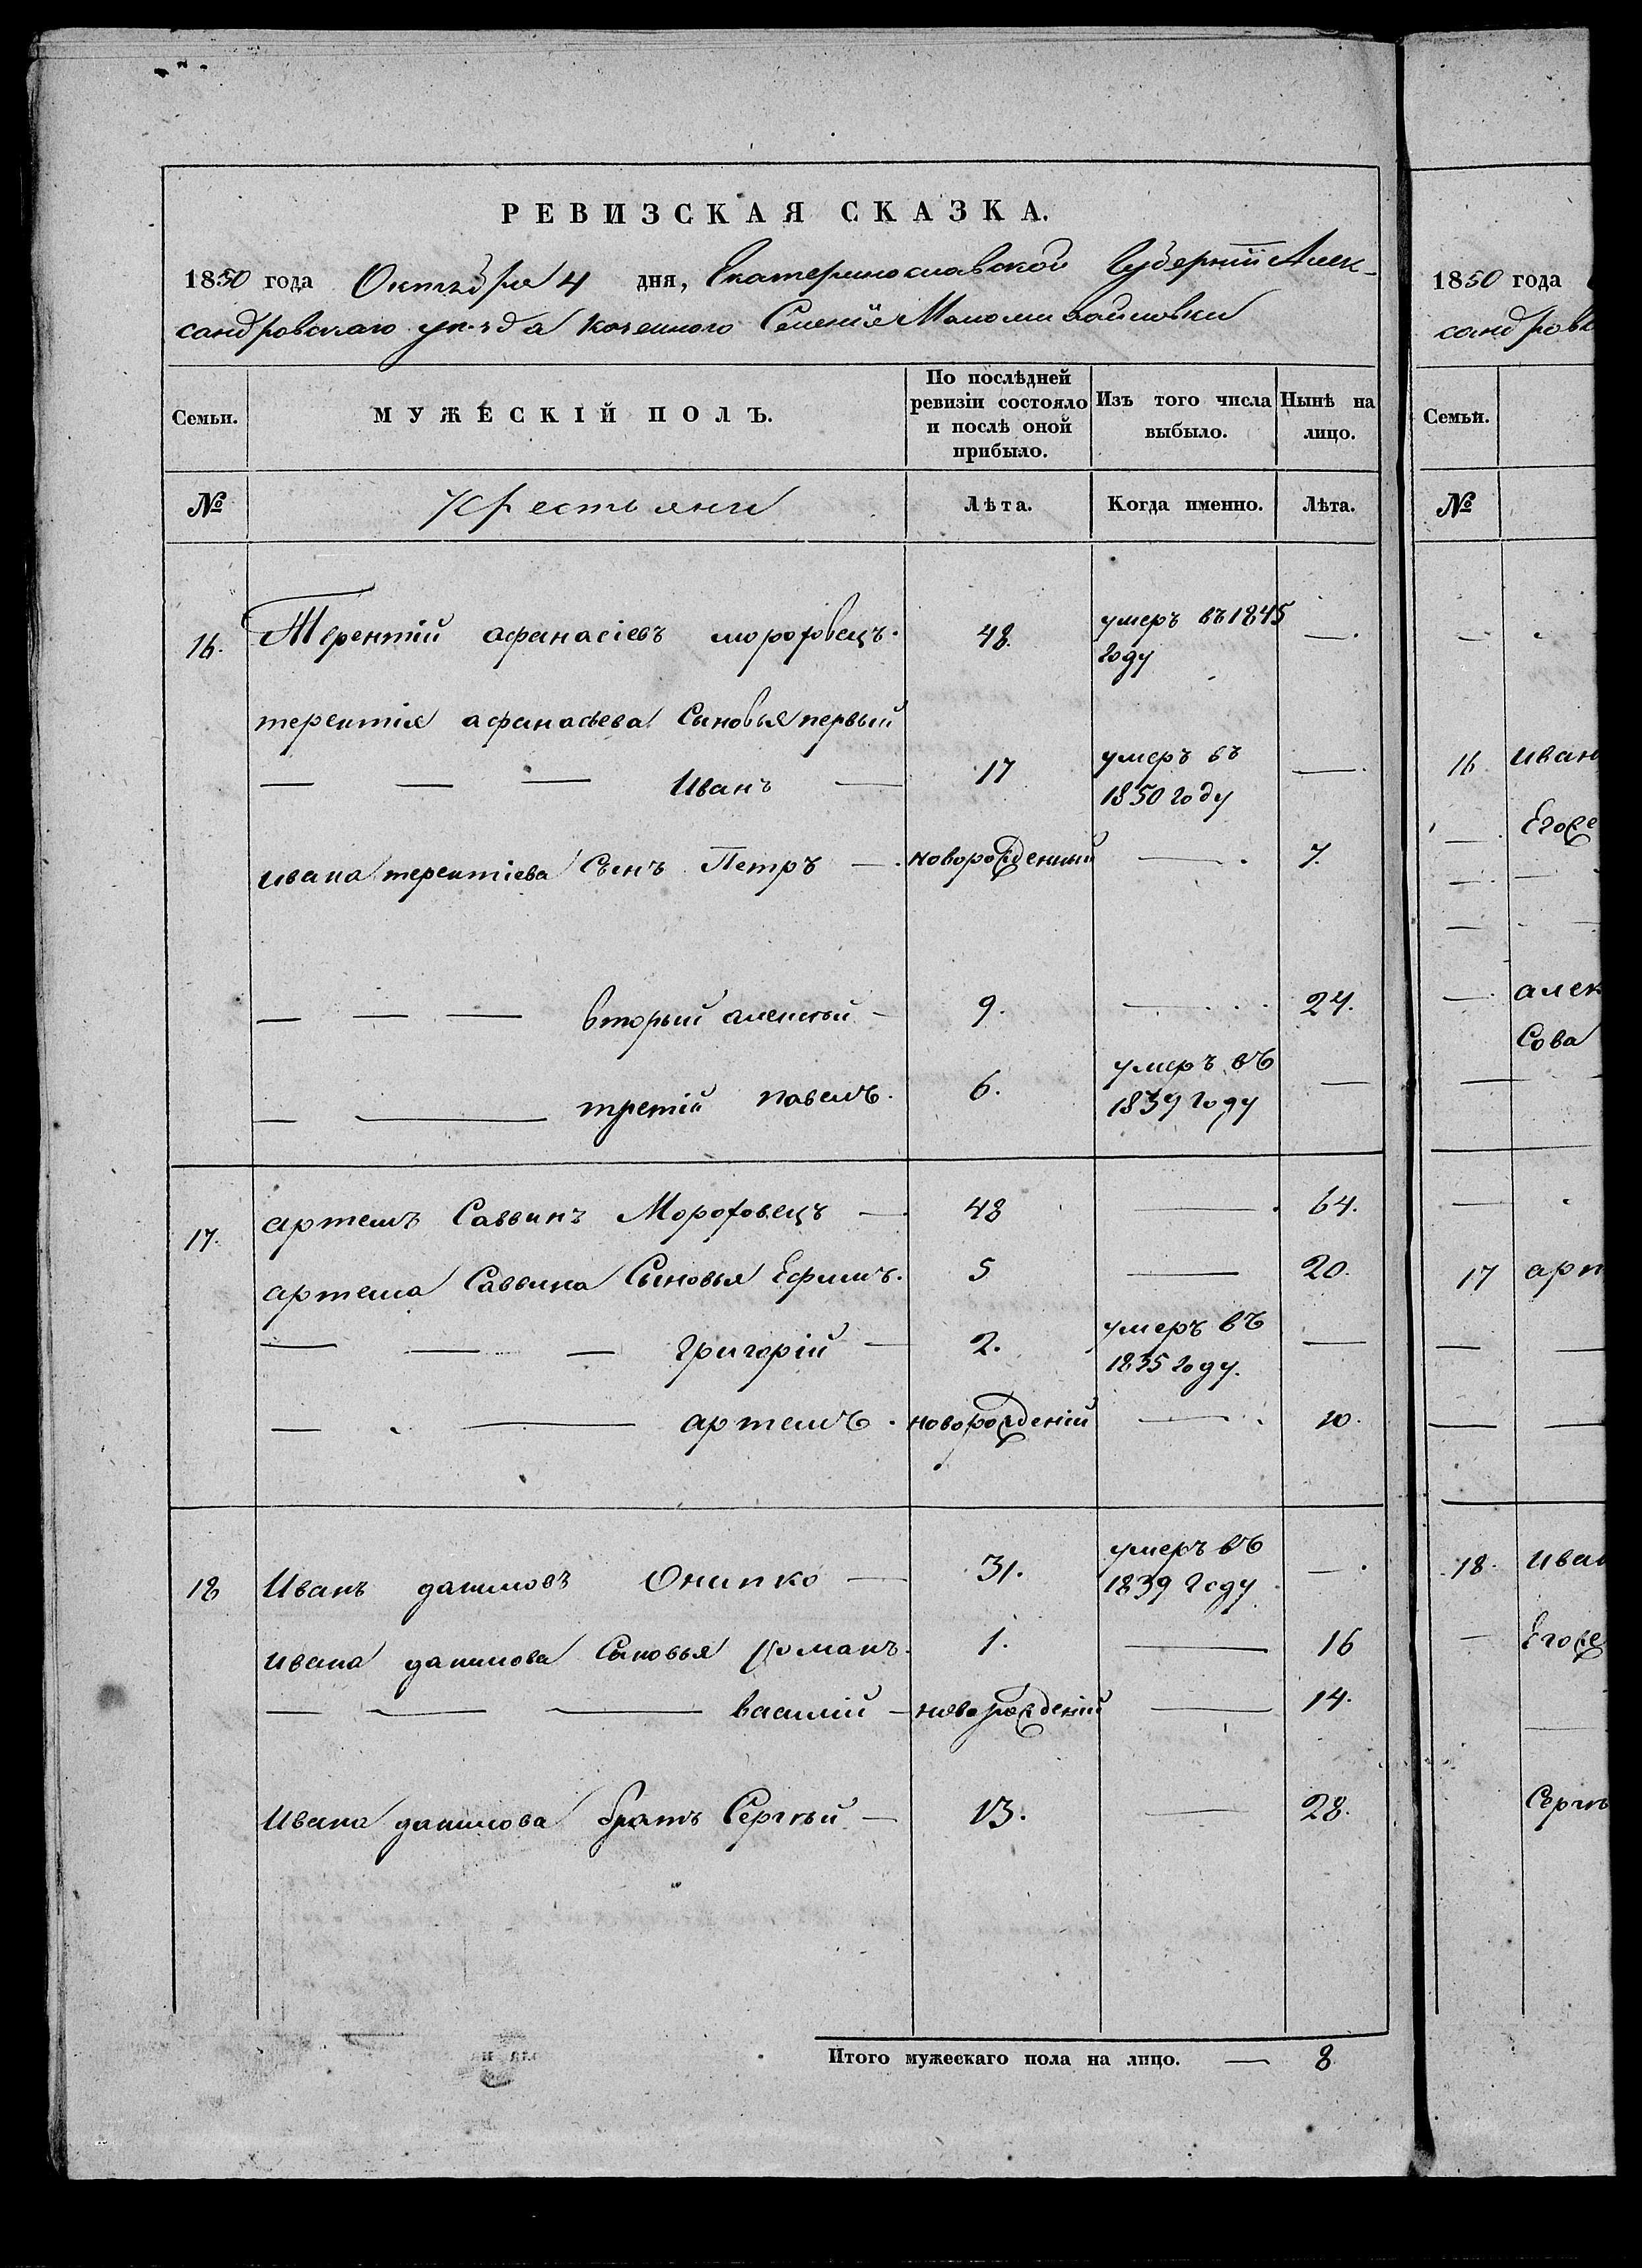 РЕВИЗСКАЯ СКАЗКА.
1850 года Октября 4 дня, Екатеринославской Губерніи Алек-
сандровскаго уѣзда казенного Селенія Маломихайловки
Семьи. МУЖЕСКІЙ ПОЛЪ. По послѣдней ревизіи состояло и послѣ оной прибыло. Изъ того числа выбыло. Нынѣ на лицо.
№ Крестьяни Лѣта. Когда именно. Лѣта.
16. Терентій афанасіевъ морозовецъ. 48. умеръ въ 1845 году —.
терентія афанасьева Сыновья первый
— — — Иванъ — 17 умеръ въ 1850 году —.
ивана терентіева Сынъ Петръ —. новорожденный —. 7.
— — — вторый алексѣй — 9. — 24.
— — третій павелъ. 6. умеръ въ 1839 году —
17. артемъ Саввинъ Морозовецъ —. 48 —. 64.
артема Саввина Сыновья Ефимъ. 5 — 20.
— — — Григорій — 2. умеръ въ 1835 году. —
— — артемъ. новорожденій —. 10.
18 Иванъ даниловъ Онипко — 31. умеръ въ 1839 году. —.
ивана данилова Сыновья романъ. 1. — 16
— — — василій — новорожденій — 14.
Ивана данилова братъ Сергѣй — 13. — 28.
Итого мужескаго пола на лицо. — 8
1850 года
сандровс
Семьи.
№
16 иван
Егоже
алек
Сова
17 арт
18. иван
Егоже
Сергѣ